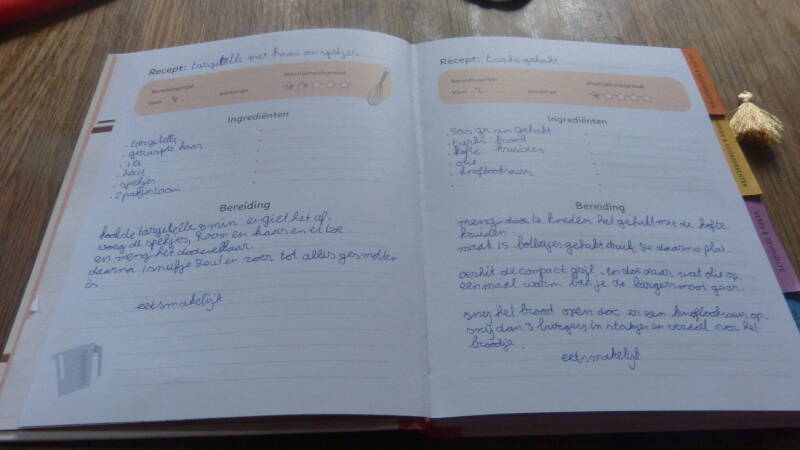 Recept: targetelli met kaas en spekjes
Bereidingstijd:
Moeilijkheidsgraad
Voor 4 personen
Ingrediënten
. targetelle
. geraspte kaas
. 1 ei
. zout
. spekjes
. 2 pakjes room
Bereiding
kook de targetelle 8 min en giet het af.
voeg de spekjes, Room en kaas en ei toe
en meng het doorelkaar.
daarna 1 snufje zout en roer tot alles gesmolten
is
eetsmakelijk
Recept: turks gehakt
Bereidingstijd:
Moeilijkheidsgraad
Voor 2 personen
Ingrediënten
. 500 gram gehakt
. turks brood
. kofte kruiden
. olie
. knoflooksaus
Bereiding
meng door te kneden het gehakt met de kofte
kruiden.
maak 15 bolletjes gehakt druk ze daarna plat.
verhit de contact gril. En doe daar wat olie op.
eenmaal warm bak je de burgers mooi gaar.
snij het brood open doe er een knoflooksaus op.
snij dan 3 burgers in stukjes en verdeel over het
broodje.
eetsmakelijk